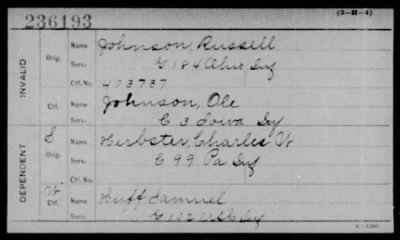 236193
(3-H-4)
INVALID
Orig.
Name Johnson, Russell
Serv. G 184 Ohio Inf
Ctf. No. 403737
Ctf.
Name Johnson, Ole
Serv. C 3 Iowa Inf
DEPENDENT
Orig.
Name Herbster, Charles W
Serv. C 99 Pa Inf
Ctf. No.
W
Ctf.
Name Huff Samuel
Serv. G 102 USC Inf